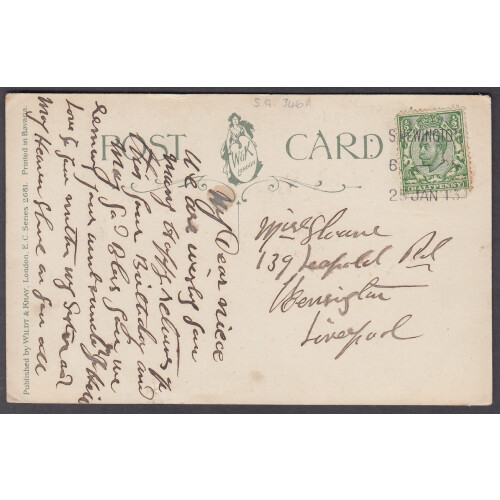 S.G. 346A
POST CARD
W&K
LONDON
S.KENINGTO
6
25 JAN 13
HALFPENNY
Miss Sloane
139 Leopold Rd
Kensington
Liverpool
My Dear niece
We are wishing you
many Happy returns of
this your Birthday and
May God Bless you we
Remain your Uncle
Love to your mother my sister and
May Heaven Shine on you all
Published by WILDT & KRAY, London, E.C. Series 2681. Printed in Bavaria.